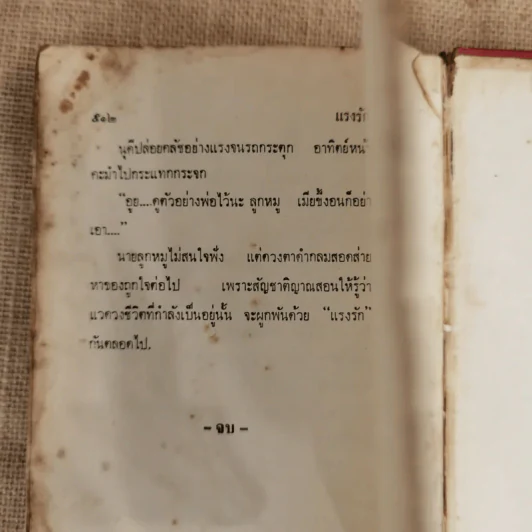 ๕๑๒ แรงรัก
นุดีปล่อยคลัชอย่างแรงจนรถกระตุก อาทิตย์หน้
คะมำไปกระแทกกระจก
"อูย....ดูตัวอย่างพ่อไว้นะ ลูกหมู เมียขี้งอนก็อย่า
เอา...."
นายลูกหมูไม่สนใจฟัง แต่ดวงตาดำกลมสอดส่าย
หาของถูกใจต่อไป เพราะสัญชาติญาณสอนให้รู้ว่า
แวดวงชีวิตที่กำลังเป็นอยู่นั้น จะผูกพันด้วย "แรงรัก"
กันตลอดไป.
- จบ -